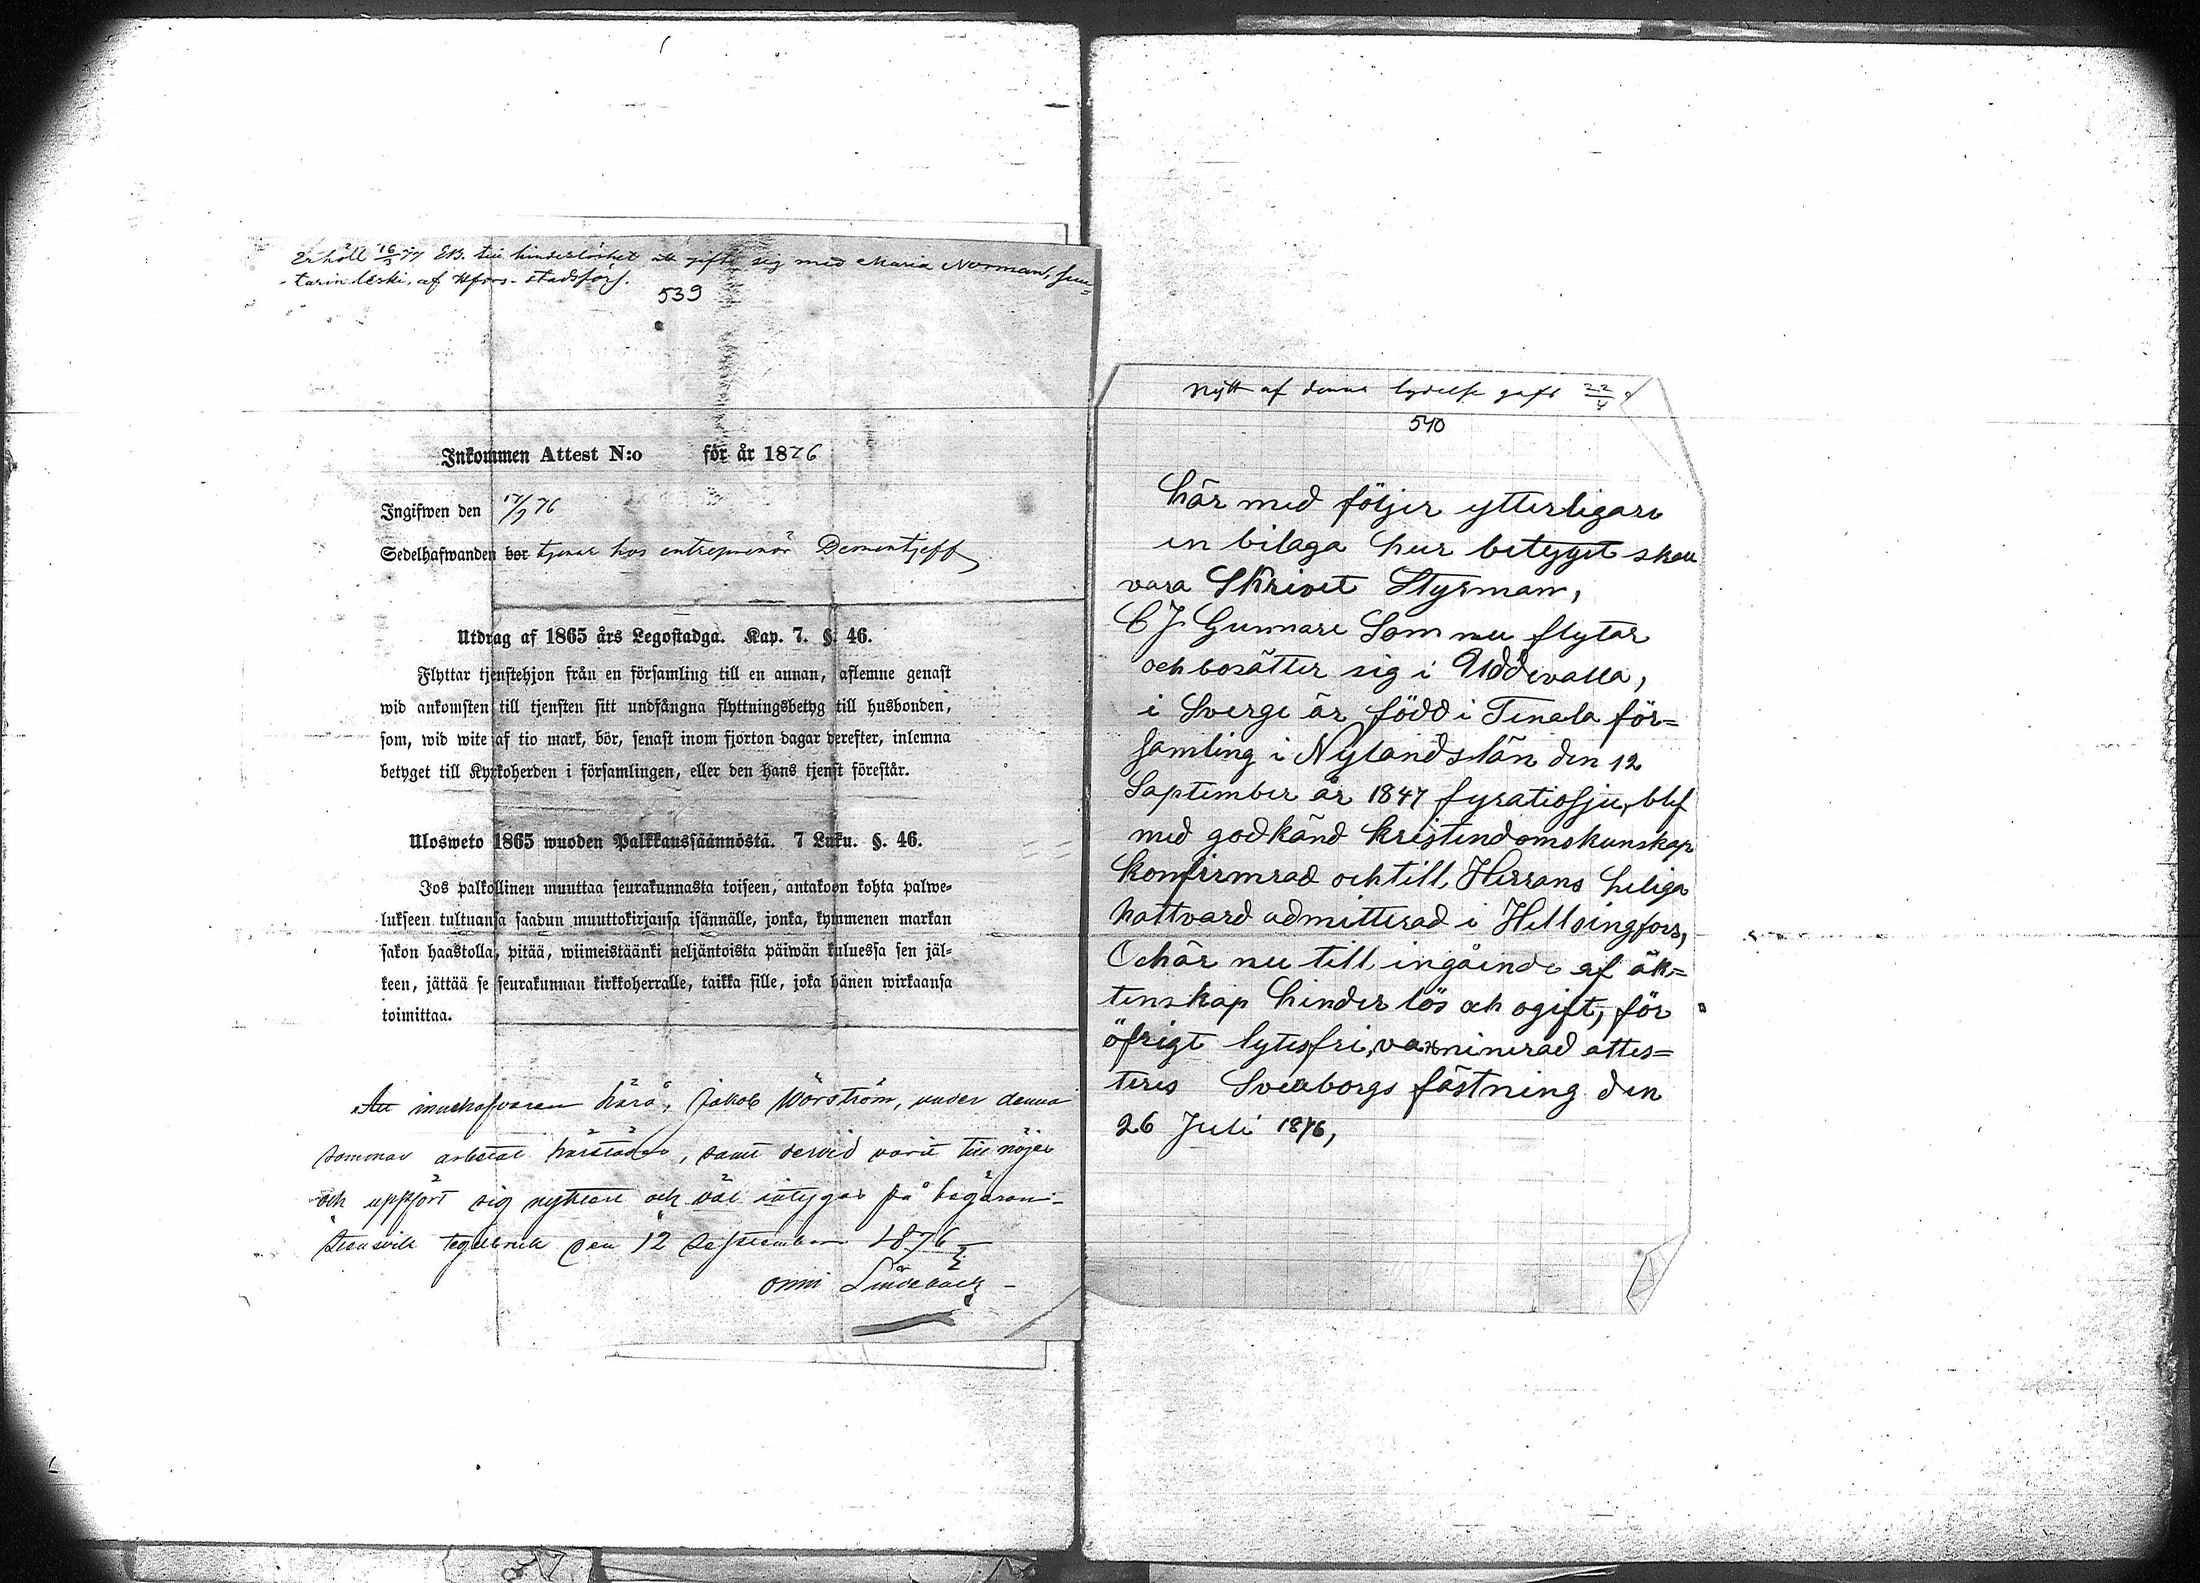 Erhöll 16/3 77 EB. till hinderlöshet att gifta sig med Maria Norman,
af Hfors. stadsförs.
539
Inkommen Attest N:o för år 1876
Ingifwen den 17/9 76
Sedelhafwanden bor tjenar hos entreprenör Dementjeff
Utdrag af 1865 års Legostadga. Kap. 7. §. 46.
Flyttar tjenstehjon från en församling till en annan, aflemne genast
wid ankomsten till tjensten sitt undfångna flyttningsbetyg till husbonden,
som, wid wite af tio mark, bör, senast inom fjorton dagar derefter, inlemna
betyget till Kyrkoherden i församlingen, eller den hans tjenst förestår.
Ulosweto 1865 wuoden Palkkaussäännöstä. 7 Luku. §. 46.
Jos palkollinen muuttaa seurakunnasta toiseen, antakoon kohta palwe-
lukseen tultuansa saadun muuttokirjansa isännälle, jonka, kymmenen markan
sakon haastolla, pitää, wiimeistäänki neljäntoista päiwän kuluessa sen jäl-
keen, jättää se seurakunnan kirkkoherralle, taikka sille, joka hänen wirkaansa
toimittaa.
Att innehafvaren härå, Jakob Mörström, under denna
sommar arbetat härstädes, samt dervid varit till nöjes
och uppfört sig nyktert och väl intygas på begäran:
tegelbruk den 12 September 1876
Onni Lindebäck
Nytt af denna lydelse gafs 22/4
540
här med följer ytterligare
en bilaga hur betyget skall
vara Skrivet Styrman,
C J Gunnare Som nu flytar
och bosätter sig i Uddevalla,
i Sverge är född i Tenala för=
samling i Nylands län den 12
Saptember år 1847 fyratiosju, blef
med godkänd kristendomskunskap
Konfirmrad och till Herrans heliga
nattvard admitterad i Hellsingfors,
Och är nu till ingående af äk=
tenskap hinder lös och ogift, för
öfrigt lytesfri, vaxninerad attes=
teres Sveaborgs fästning den
26 Juli 1876,